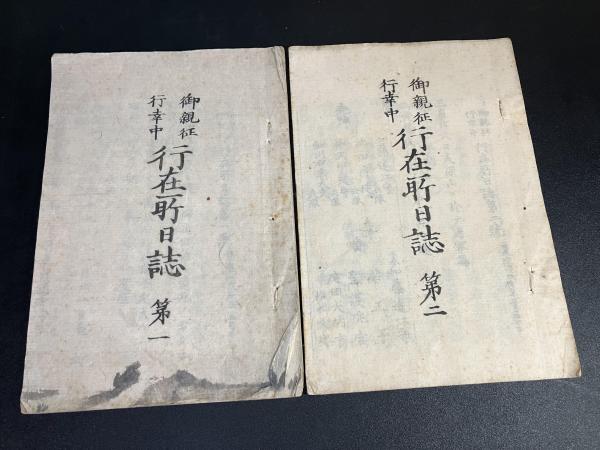 御親征
行幸中
行在所日誌 第一
御親征
行幸中
行在所日誌 第二